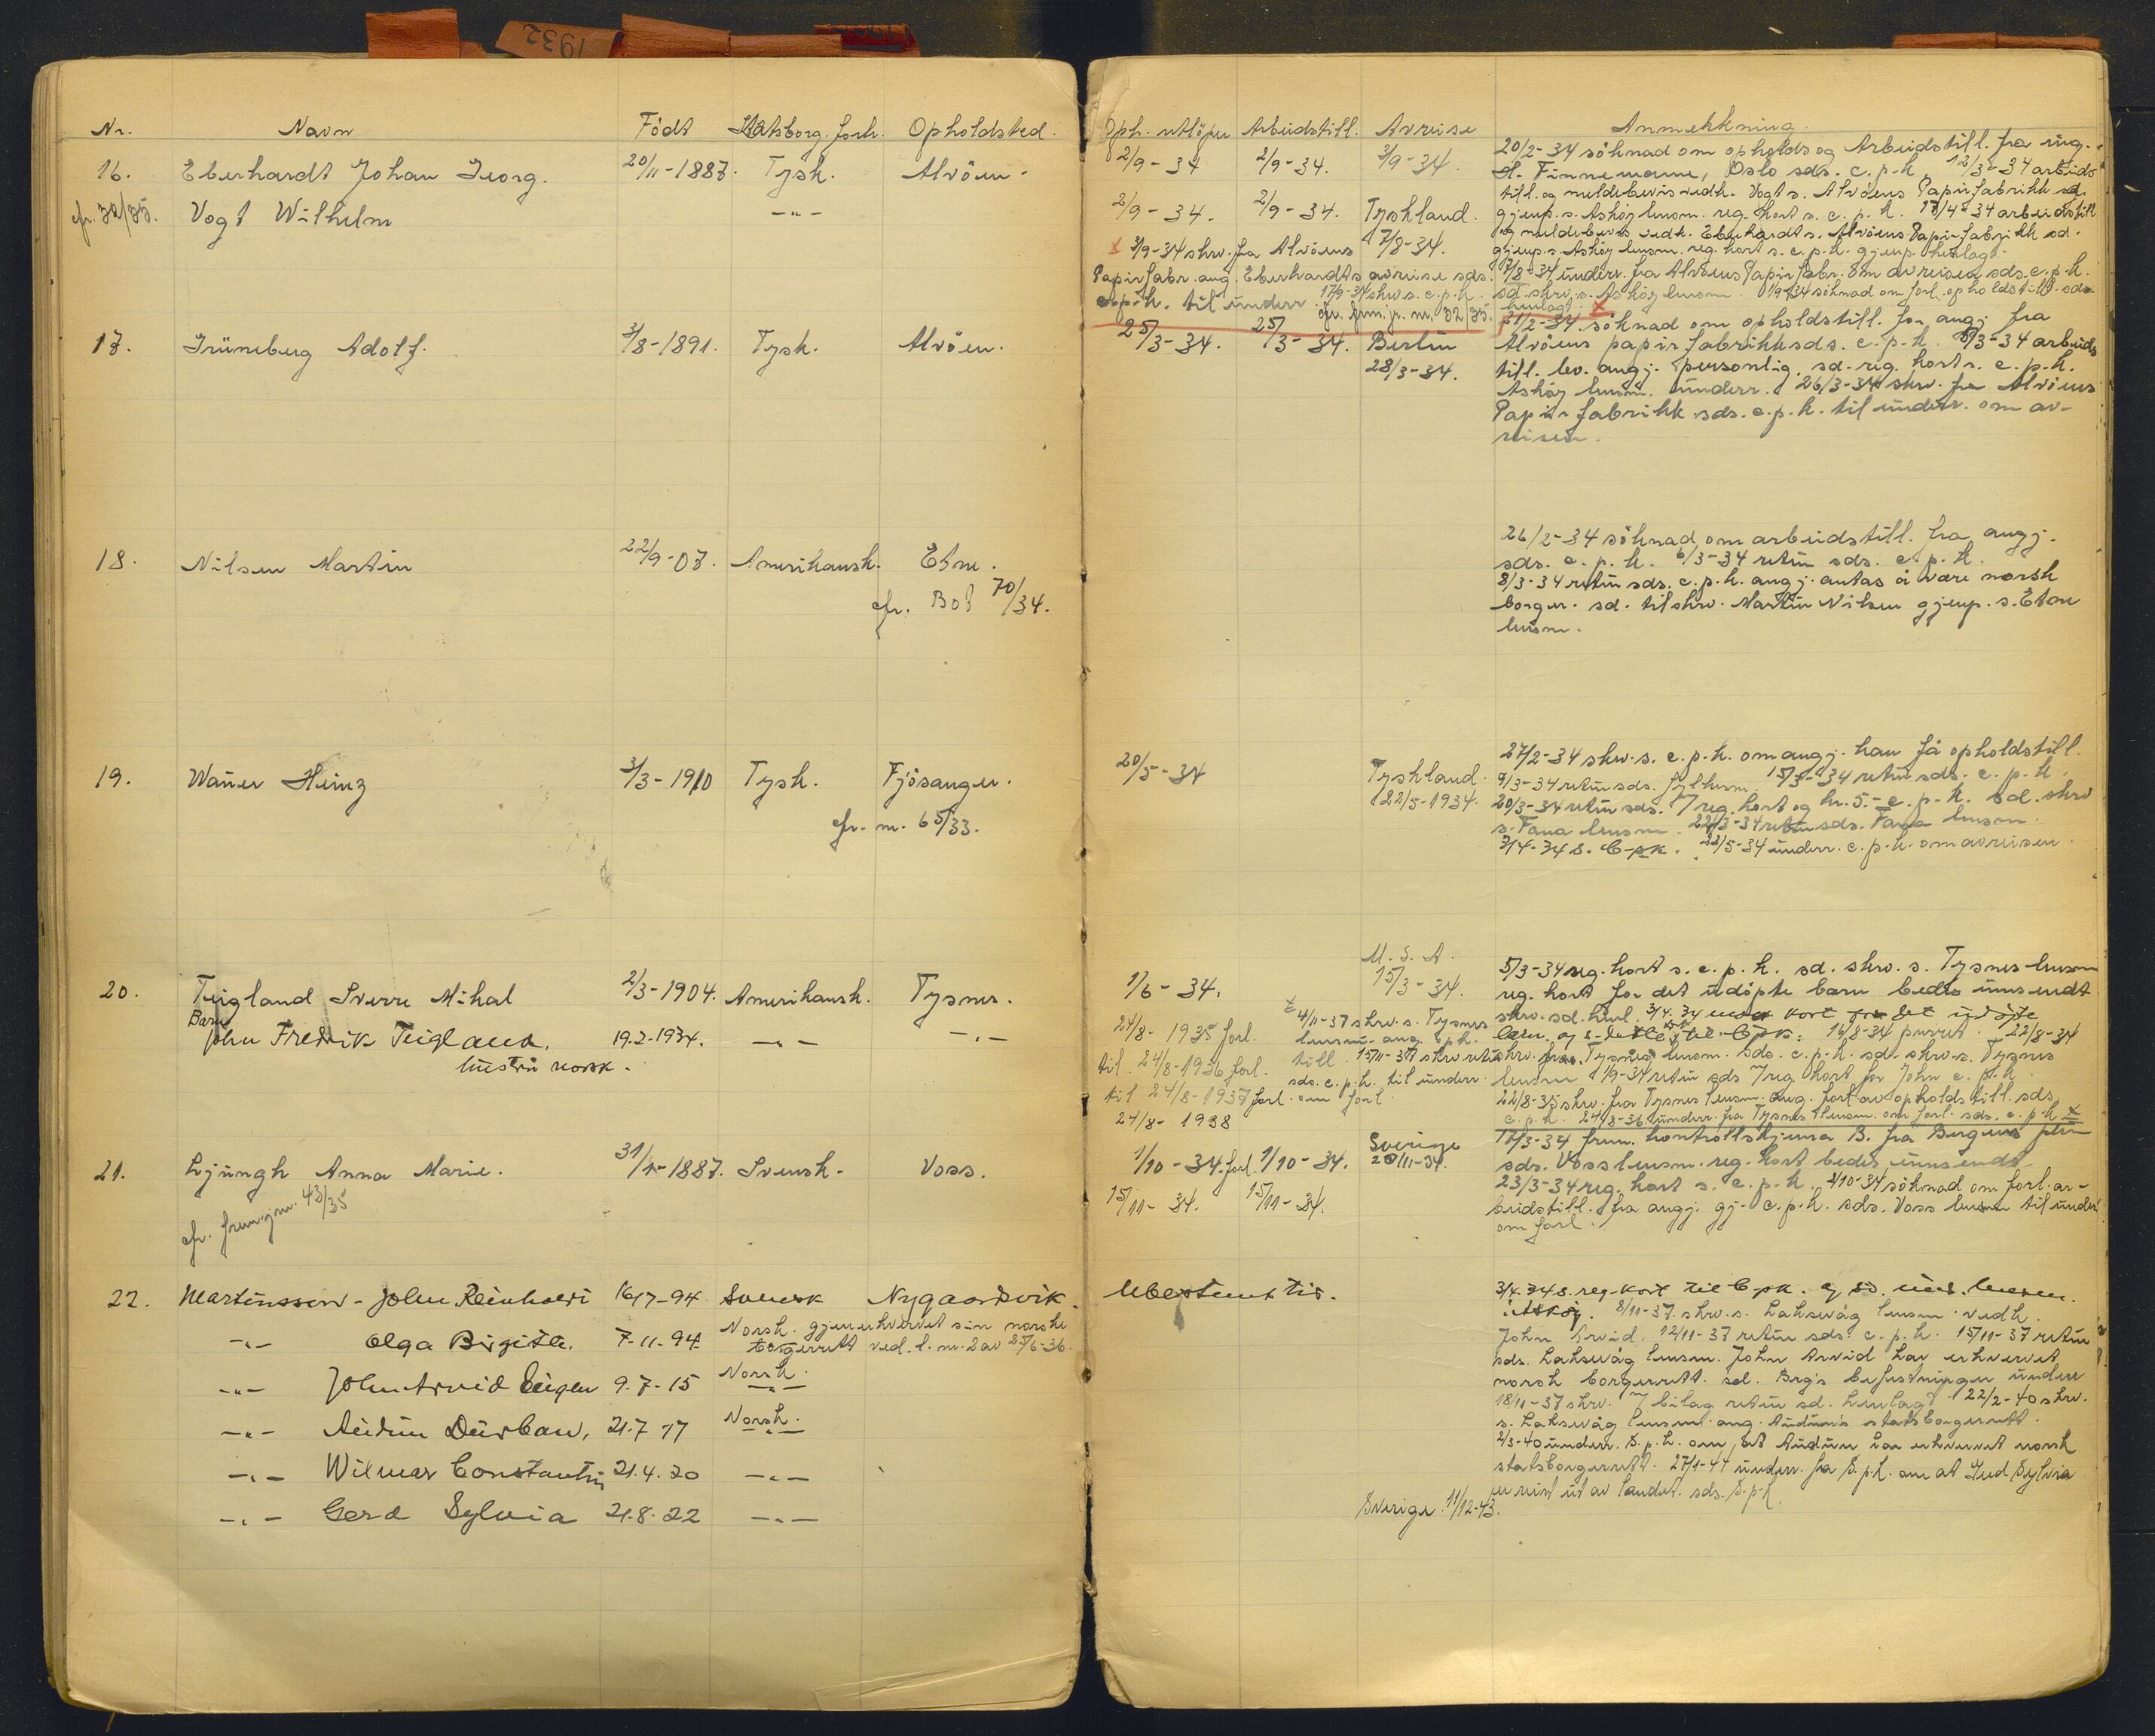 1932
Nr. Navn Født Statsborg. forh. Opholdsted.
16. Eberhardt Johan Georg. 20/11-1887. Tysk. Alvöen.
cfr. 32/35. Vogt Wilhelm -"-
17. Grüneberg Adolf. 3/8-1891. Tysk. Alvöen.
18. Nilsen Martin 22/9-07. Amerikansk. Etne.
cfr. Bob 70/34.
19. Waner Heinz 3/3-1910 Tysk. Fjösanger.
cfr. nr. 65/33.
20. Teigland Sverre Mikal 2/3-1904. Amerikansk. Tysnes.
Barn
John Fredrik Teigland. 19.2-1934. -"- -"-
hustru norsk.
21. Ljungh Anna Marie. 1887. Svensk. Voss.
cfr. frem.jnr. 43/35
22. Martinsson - John Reinhold 16/7-94 Svensk Nygaardsvik.
-"- Olga Birgite. 7-11-94 Norsk. gjenerhvervet sin norske
borgerrett ved. l. nr. 2 av 25/6-36.
-"- John Arvid Eugen 9.7-15 Norsk.
-"-
-"- Audun Durban, 21.7-17 Norsk.
-"-
-"- Wilmar Constantin 21.4.20 -"-
-"- Gerd Sylvia 21.8.22 -"-
Oph. utlöper Arbeidstill. Avreise Anmerkning.
2/9-34 2/9-34. 3/9-34. 20/2-34 söknad om opholds og Arbeidstill. fra ing.
A. Finnemann, Oslo sds. c.p.k. 12/3-34 arbeids
till. og meldebevis vedk. Vogt s. Alvöens Papirfabrikk sd.
2/9-34. 2/9-34. Tyskland. gjenp. s. Askøy lensm. reg. kort s. c.p.k. 17/4-34 arbeidstill
7/8-34. og meldebevis vedk. Eberhardt s. Alvöens Papirfabrikk sd.
x 3/9-34 skrv. fra Alvöens gjenp. s. Askøy lensm. reg. kort s. c.p.k. gjenp. henlagt.
Papirfabr. ang. Eberhardts avreise sds. 7/8-34 underr. fra Alvöens Papirfabr. om avreisen sds. c.p.k.
c.p.k. til underr. 17/9-34 skrv. s. c.p.k. sd. skrv. s. Askøy lensm. 1/9-34 söknad om forl. opholdstill. sds.
cfr. frem. jr. nr. 32/35. henlagt. x
21/2-34 söknad om opholdstill. for angj. fra
25/3-34. 25/3-34. Berlin Alvöens papirfabrikk sds. c.p.k. 8/3-34 arbeids
28/3-34. till. lev. angj. personlig. sd. reg. kort s. c.p.k.
Askøy lensm. underr. 26/3-34 skrv. fra Alvöens
Papirfabrikk sds. c.p.k. til underr. om av-
reisen.
26/2-34 söknad om arbeidstill. fra angj.
sds. c.p.k. 6/3-34 retur sds. c.p.k.
8/3-34 retur sds. c.p.k. angj. antas å være norsk
borger. sd. tilskrv. Martin Nilsen gjenp. s. Etne
lensm.
27/2-34 skrv. s. c.p.k. om angj. kan få opholdstill.
20/5-34 Tyskland. 9/3-34 retur sds. fylkesm. 15/3-34 retur sds. c.p.k.
22/5-1934. 20/3-34 retur sds. 7 reg. kort og kr. 5.- c.p.k. sd. skrv
s. Fana lensm. 22/3-34 retur sds. Fana lensm.
3/4-34 s. C-pk. 22/5-34 underr. c.p.k. om avreisen.
U.S.A.
1/6-34. 15/3-34. 5/3-34 reg. kort s. c.p.k. sd. skrv. s. Tysnes lensm
reg. kort for det udöpte barn bedes innsendt
24/8-1935 forl. 4/11-37 skrv. s. Tysnes skrv. sd. henl. 3/4.34 kort for det udöpte
til 24/8-1936 forl. lensm. ang. oph. barn og s. til Cpk. 16/8-34 purret. 22/8-34
til 24/8-1937 forl. till. 15/11-37 skrv. retur skrv. fra Tysnes lensm. sds. c.p.k. sd. skrv. s. Tysnes
24/8-1938 sds. c.p.k. til underr. om forl. lensm 1/9-34 retur sds 7 reg kort for John c.p.k.
22/8-35 skrv. fra Tysnes lensm. ang. forl. av opholdstill. sds.
c.p.k. 24/8-36 underr. fra Tysnes lensm. om forl. sds. c.p.k. x
1/10-34. forl. 1/10-34. Sverige 17/3-34 frem. kontrollskjema B. fra Bergens
15/11-34. 15/11-34. 20/11-34. sds. Voss lensm. reg. kort bedes innsendt
23/3-34 reg. kort s. c.p.k. 2/10-34 söknad om forl. ar-
beidstill. fra angj. gj. c.p.k. sds. Voss lensm til underr
om forl.
Ubestemt tid. 3/4.34 s. reg. kort til C.pk. og sd. lensm.
i Askøy. 8/11-37. skrv. s. Laksevåg lensm. vedk.
John Arvid. 12/11-37 retur sds. c.p.k. 15/11-37 retur
sds. Laksevåg lensm. John Arvid har erhvervet
norsk borgerrett. sd. Brg's befestninger underr
18/11-37 skrv. 7 bilag retur sd. henlagt. 22/2-40 skrv.
s. Laksevåg lensm. ang. Audun's statsborgerrett.
2/3-40 underr. S.p.k. om at Audun har erhvervet norsk
statsborgerrett. 27/1-44 underr. fra S.p.k. om at Gerd Sylvia
er reist ut av landet. sds. S.p.k.
Sverige 11/12-43.